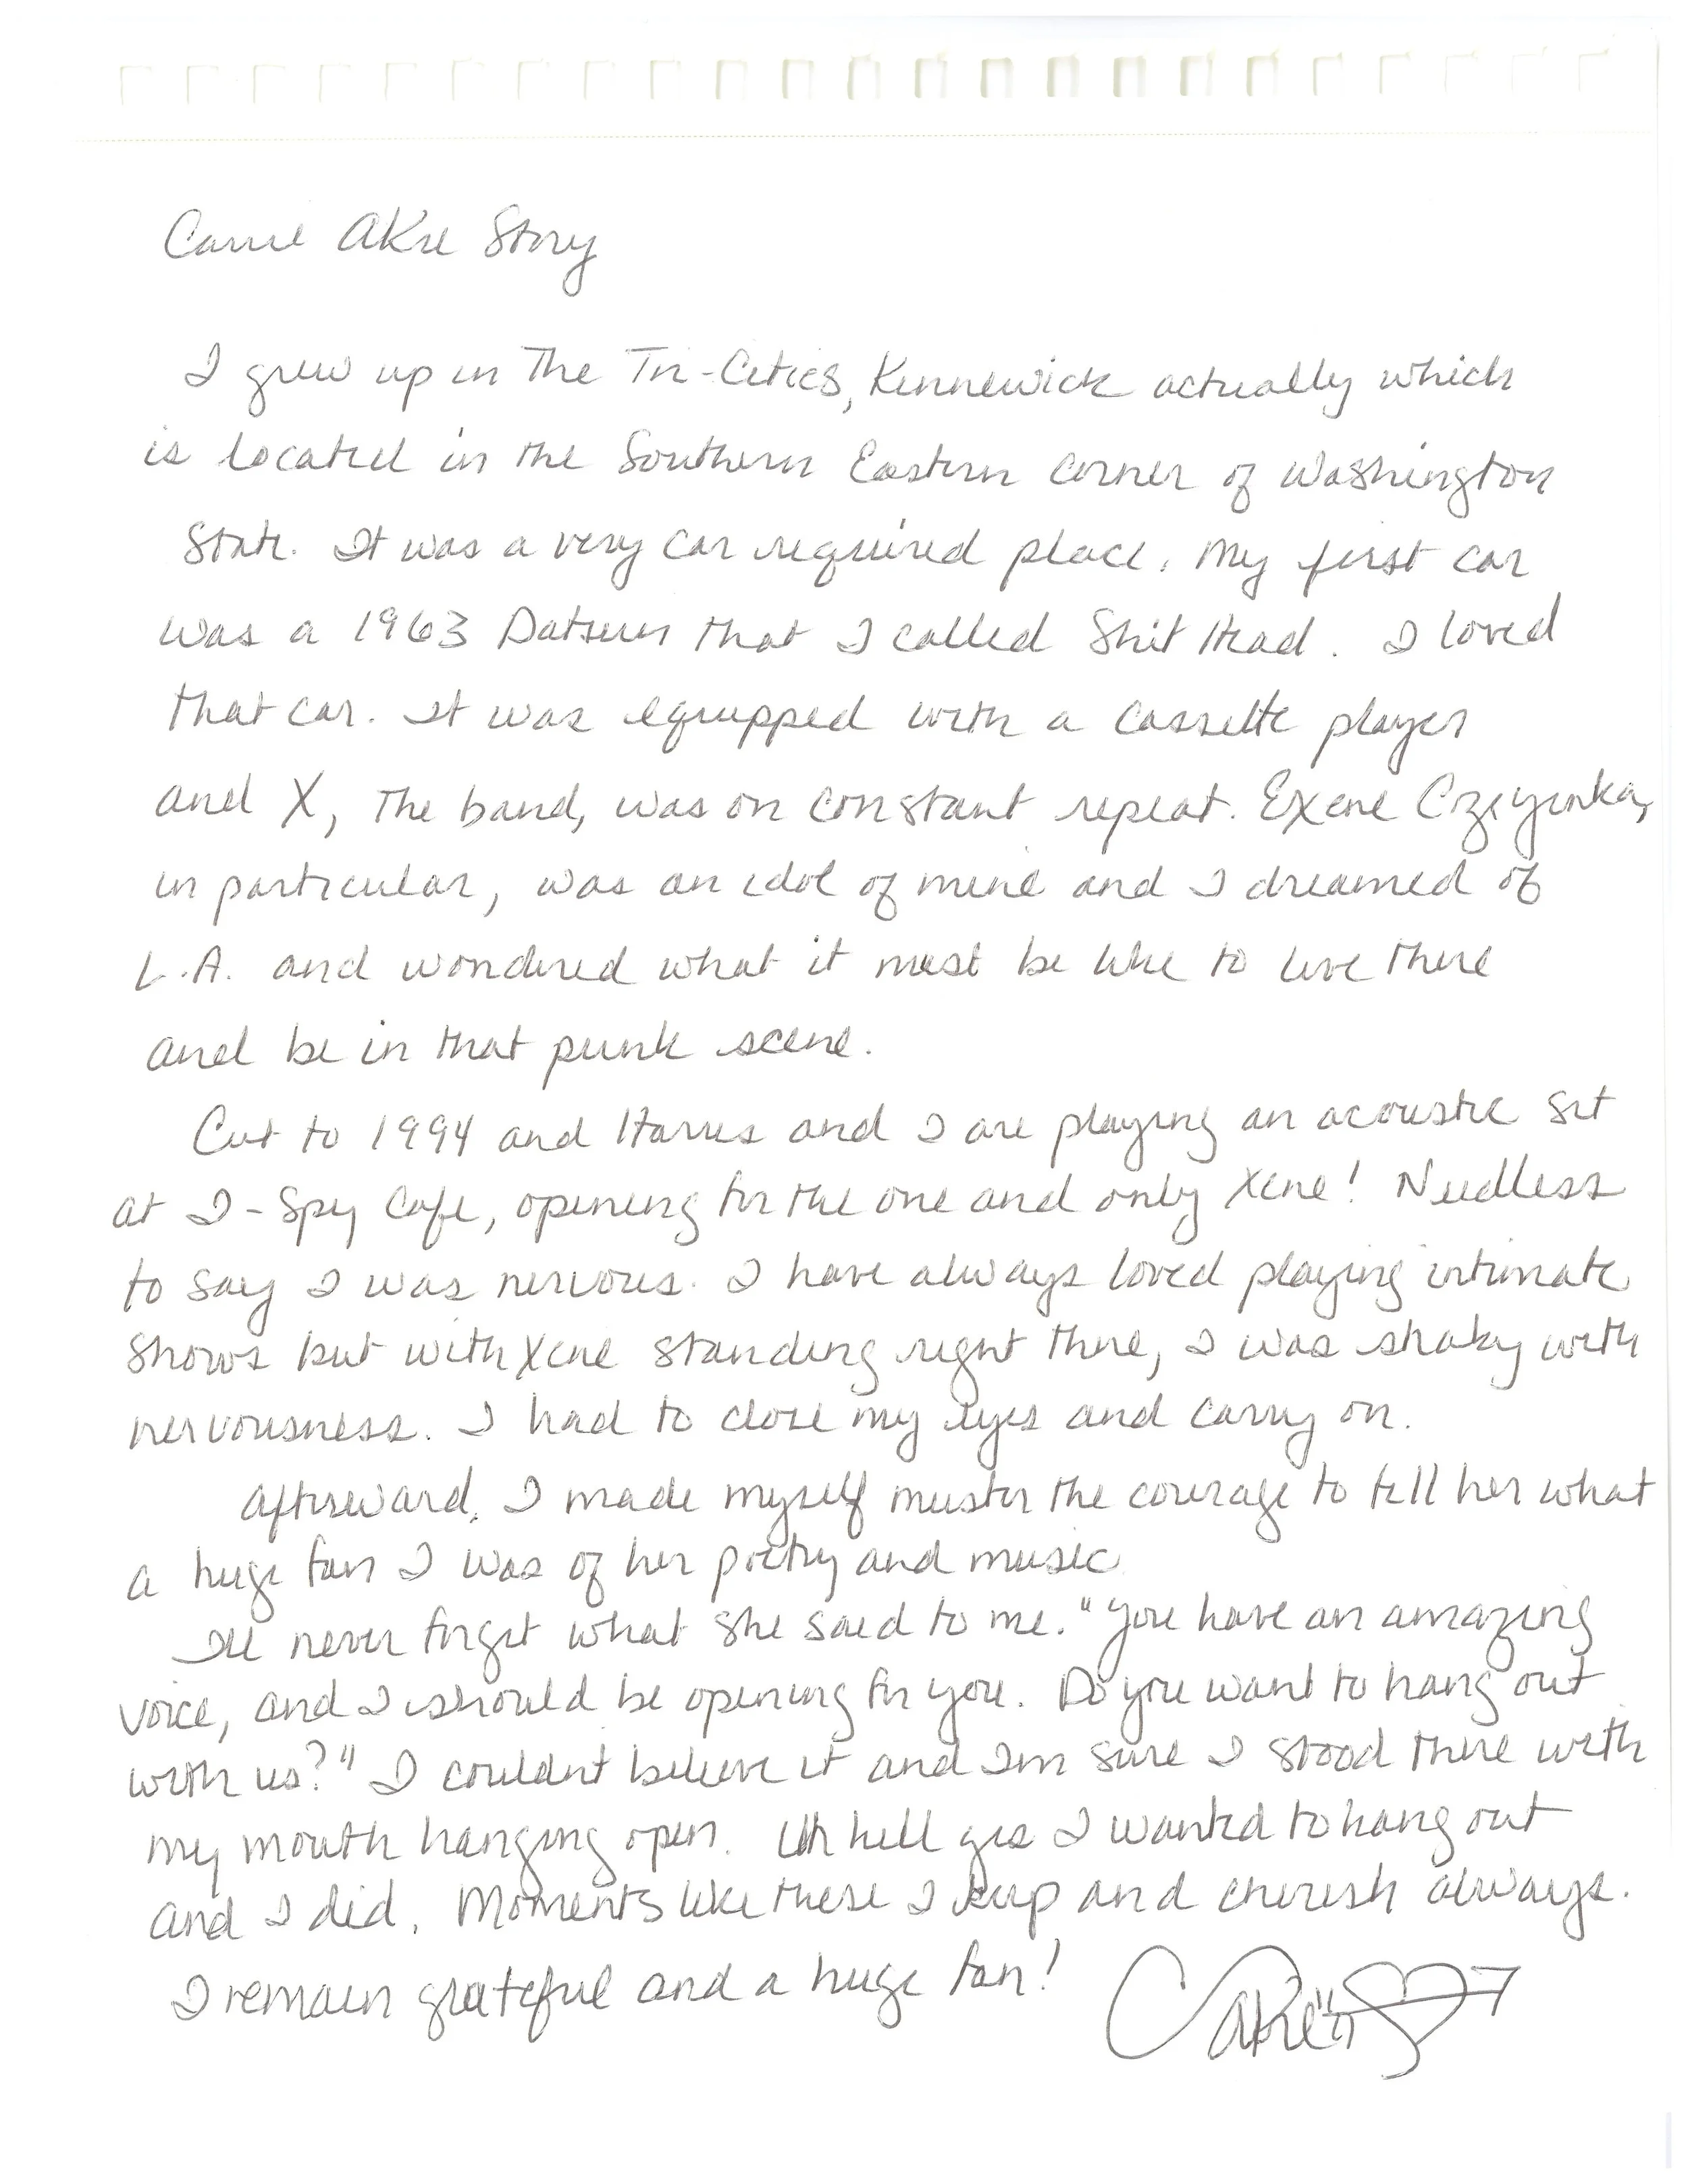 Carrie Akre Story
I grew up in The Tri-Cities, Kennewick actually which
is located in the Southern Eastern corner of Washington
State. It was a very car required place. My first car
was a 1963 Datsun that I called Shit Head. I loved
that car. It was equipped with a cassette player
and X, The band, was on constant repeat. Exene Czeyenka,
in particular, was an idol of mine and I dreamed of
L.A. and wondered what it must be like to live there
and be in that punk scene.
Cut to 1994 and Harris and I are playing an acoustic set
at I-Spy Cafe, opening for the one and only Xene! Needless
to say I was nervous. I have always loved playing intimate
shows but with Xene standing right there, I was shaky with
nervousness. I had to close my eyes and carry on.
Afterward, I made myself muster the courage to tell her what
a huge fan I was of her poetry and music
I'll never forget what she said to me. "You have an amazing
voice, and I should be opening for you. Do you want to hang out
with us?" I couldn't believe it and I'm sure I stood there with
my mouth hanging open. Uh hell yes I wanted to hang out
and I did. Moments like these I keep and cherish always.
I remain grateful and a huge fan! CAkre